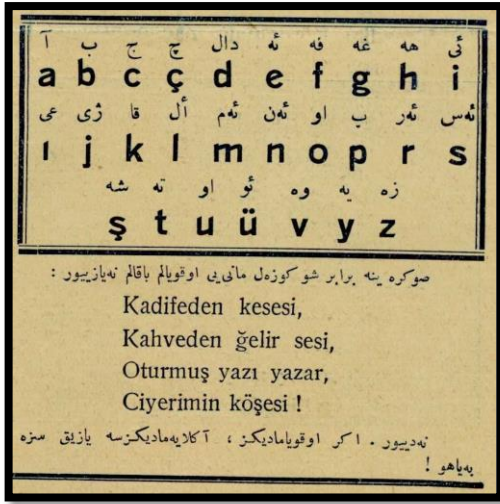 ئی هه غه فه ئه دال چ ج ب آ
a b c ç d e f g h i
ئه‌س ئه‌ر ب او ئه‌ن ئه‌م أل قا ژی عی
ı j k l m n o p r s
زه یه وه ئو او ته شه
ş t u ü v y z
صوکره ینه برابر شو کوزه‌ل مانی‌یی اوقویالم باقالم نه‌یازییور :
Kadifeden kesesi,
Kahveden ğelir sesi,
Oturmuş yazı yazar,
Ciyerimin köşesi !
نه‌دییور . اکر اوقویامادیکز ، آکلایه‌مادیکزسه یازیق سزه
به‌یاهو !